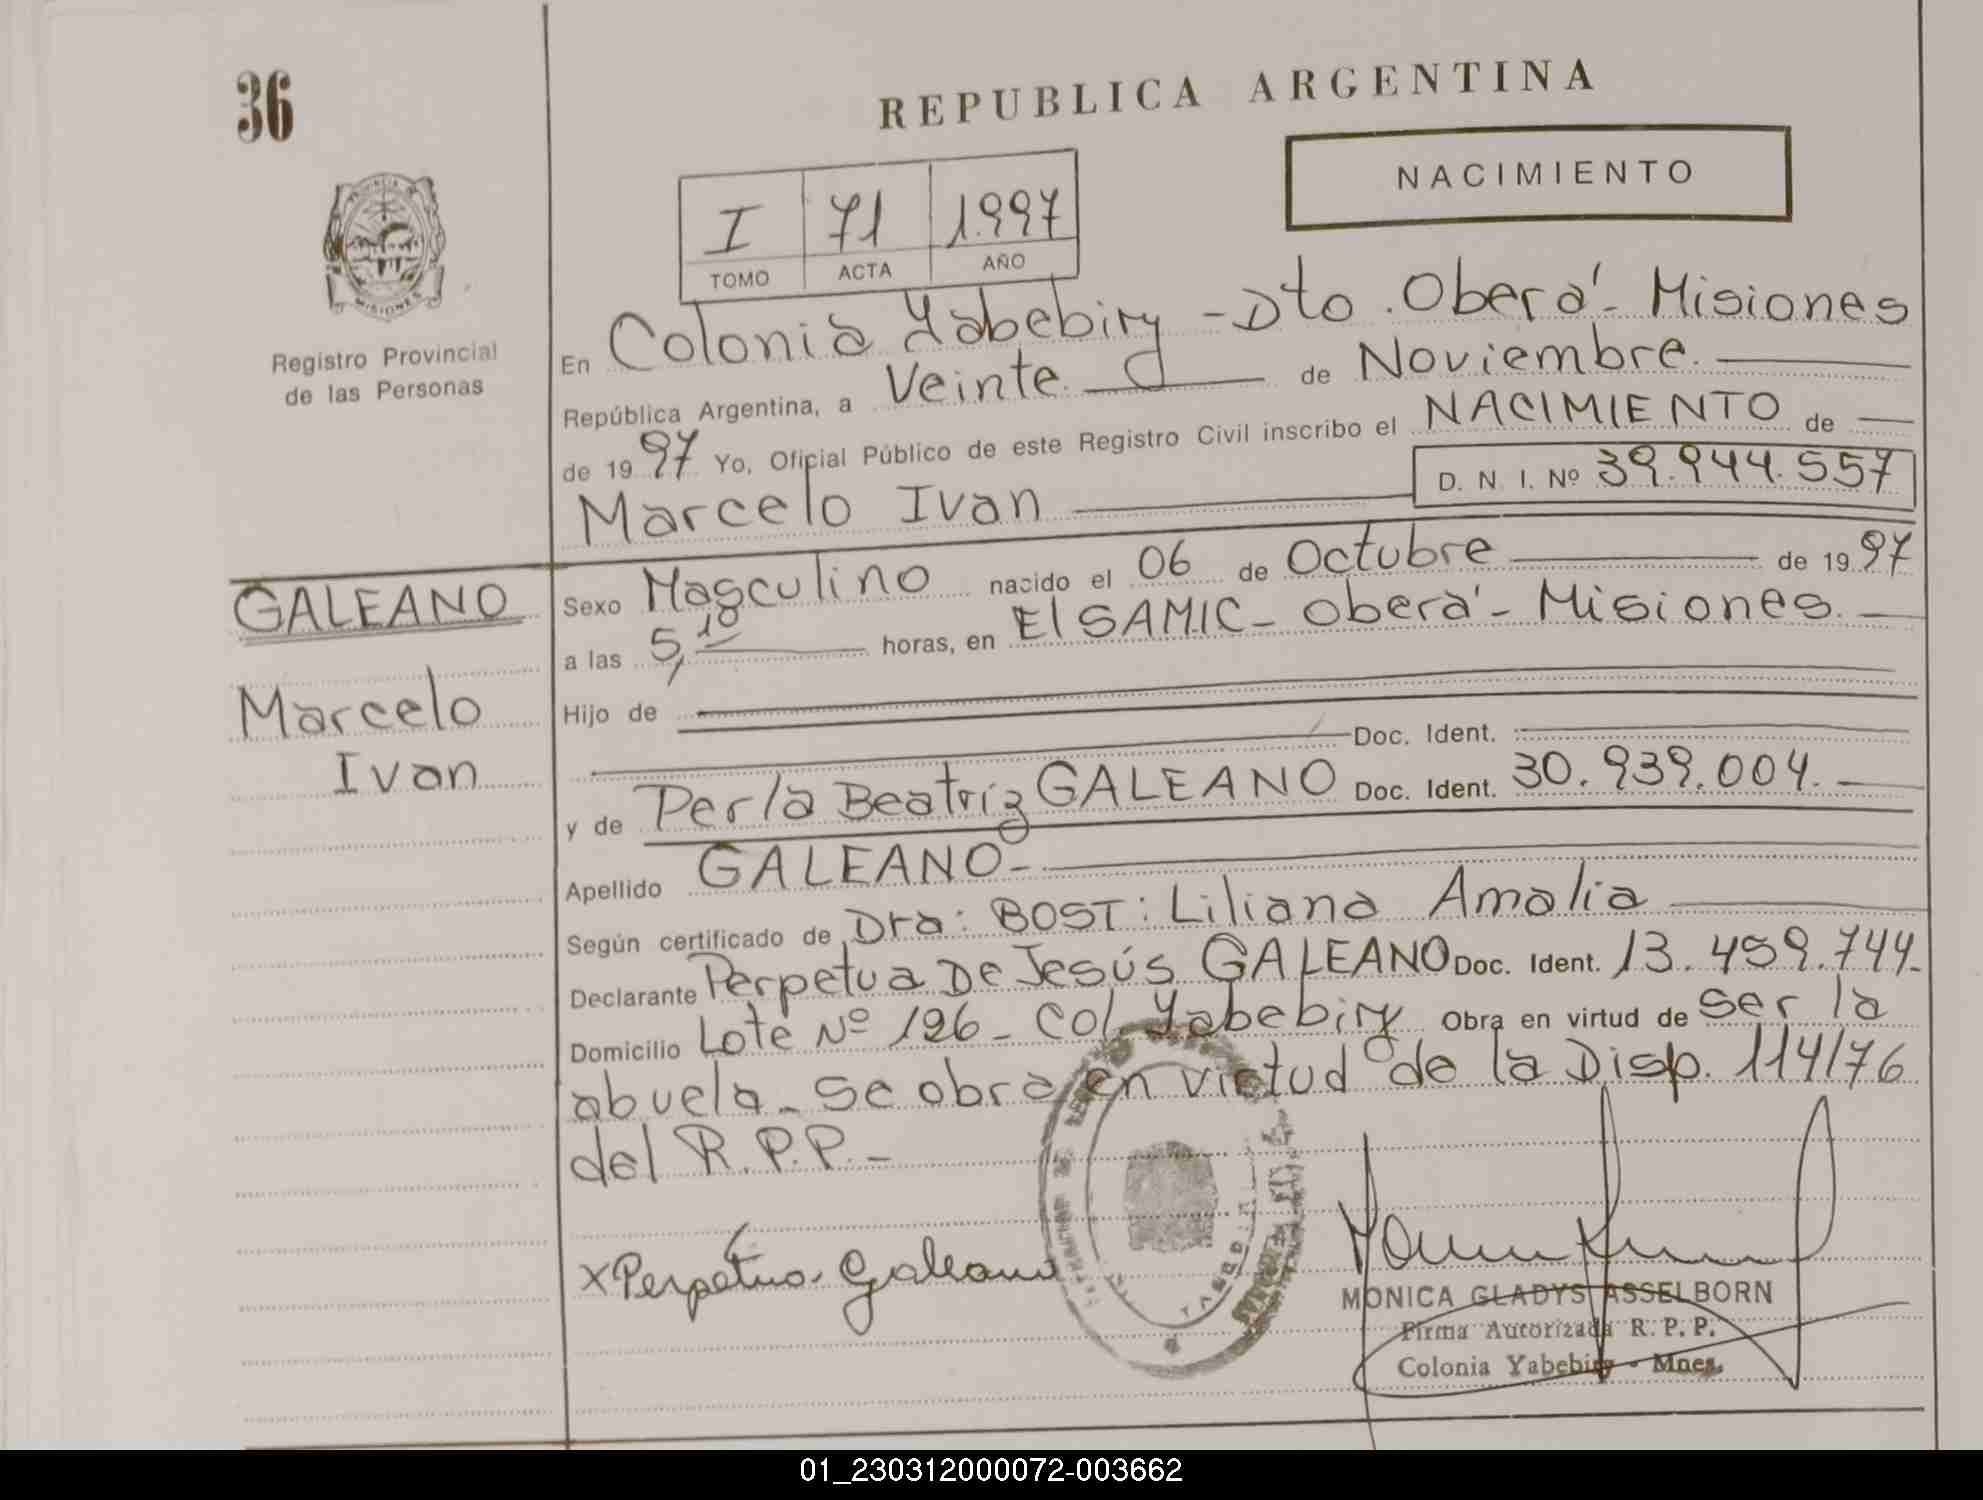 36
REPUBLICA ARGENTINA
NACIMIENTO
I 71 1.997
TOMO ACTA AÑO
PROVINCIA DE
MISIONES
Registro Provincial
de las Personas
En Colonia Yabebiry - Dto. Oberá - Misiones
República Argentina, a Veinte de Noviembre.
de 1997 Yo, Oficial Público de este Registro Civil inscribo el NACIMIENTO de
D. N. I. Nº 39.944.557
Marcelo Ivan
GALEANO
Marcelo
Ivan
Sexo Masculino nacido el 06 de Octubre de 1997
a las 5,10 horas, en El SAMIC - Oberá - Misiones.
Hijo de
Doc. Ident.
y de Perla Beatriz GALEANO Doc. Ident. 30.939.004.
Apellido GALEANO-
Según certificado de Dra: BOST: Liliana Amalia
Declarante Perpetua De Jesús GALEANO Doc. Ident. 13.459.744.
Domicilio Lote Nº 126 - Col Yabebiry Obra en virtud de ser la
abuela - se obra en virtud de la Disp. 114/76
del R.P.P. -
x Perpetua Galeano
MONICA GLADYS ASSELBORN
Firma Autorizada R. P. P.
Colonia Yabebiry - Mnes.
01_230312000072-003662